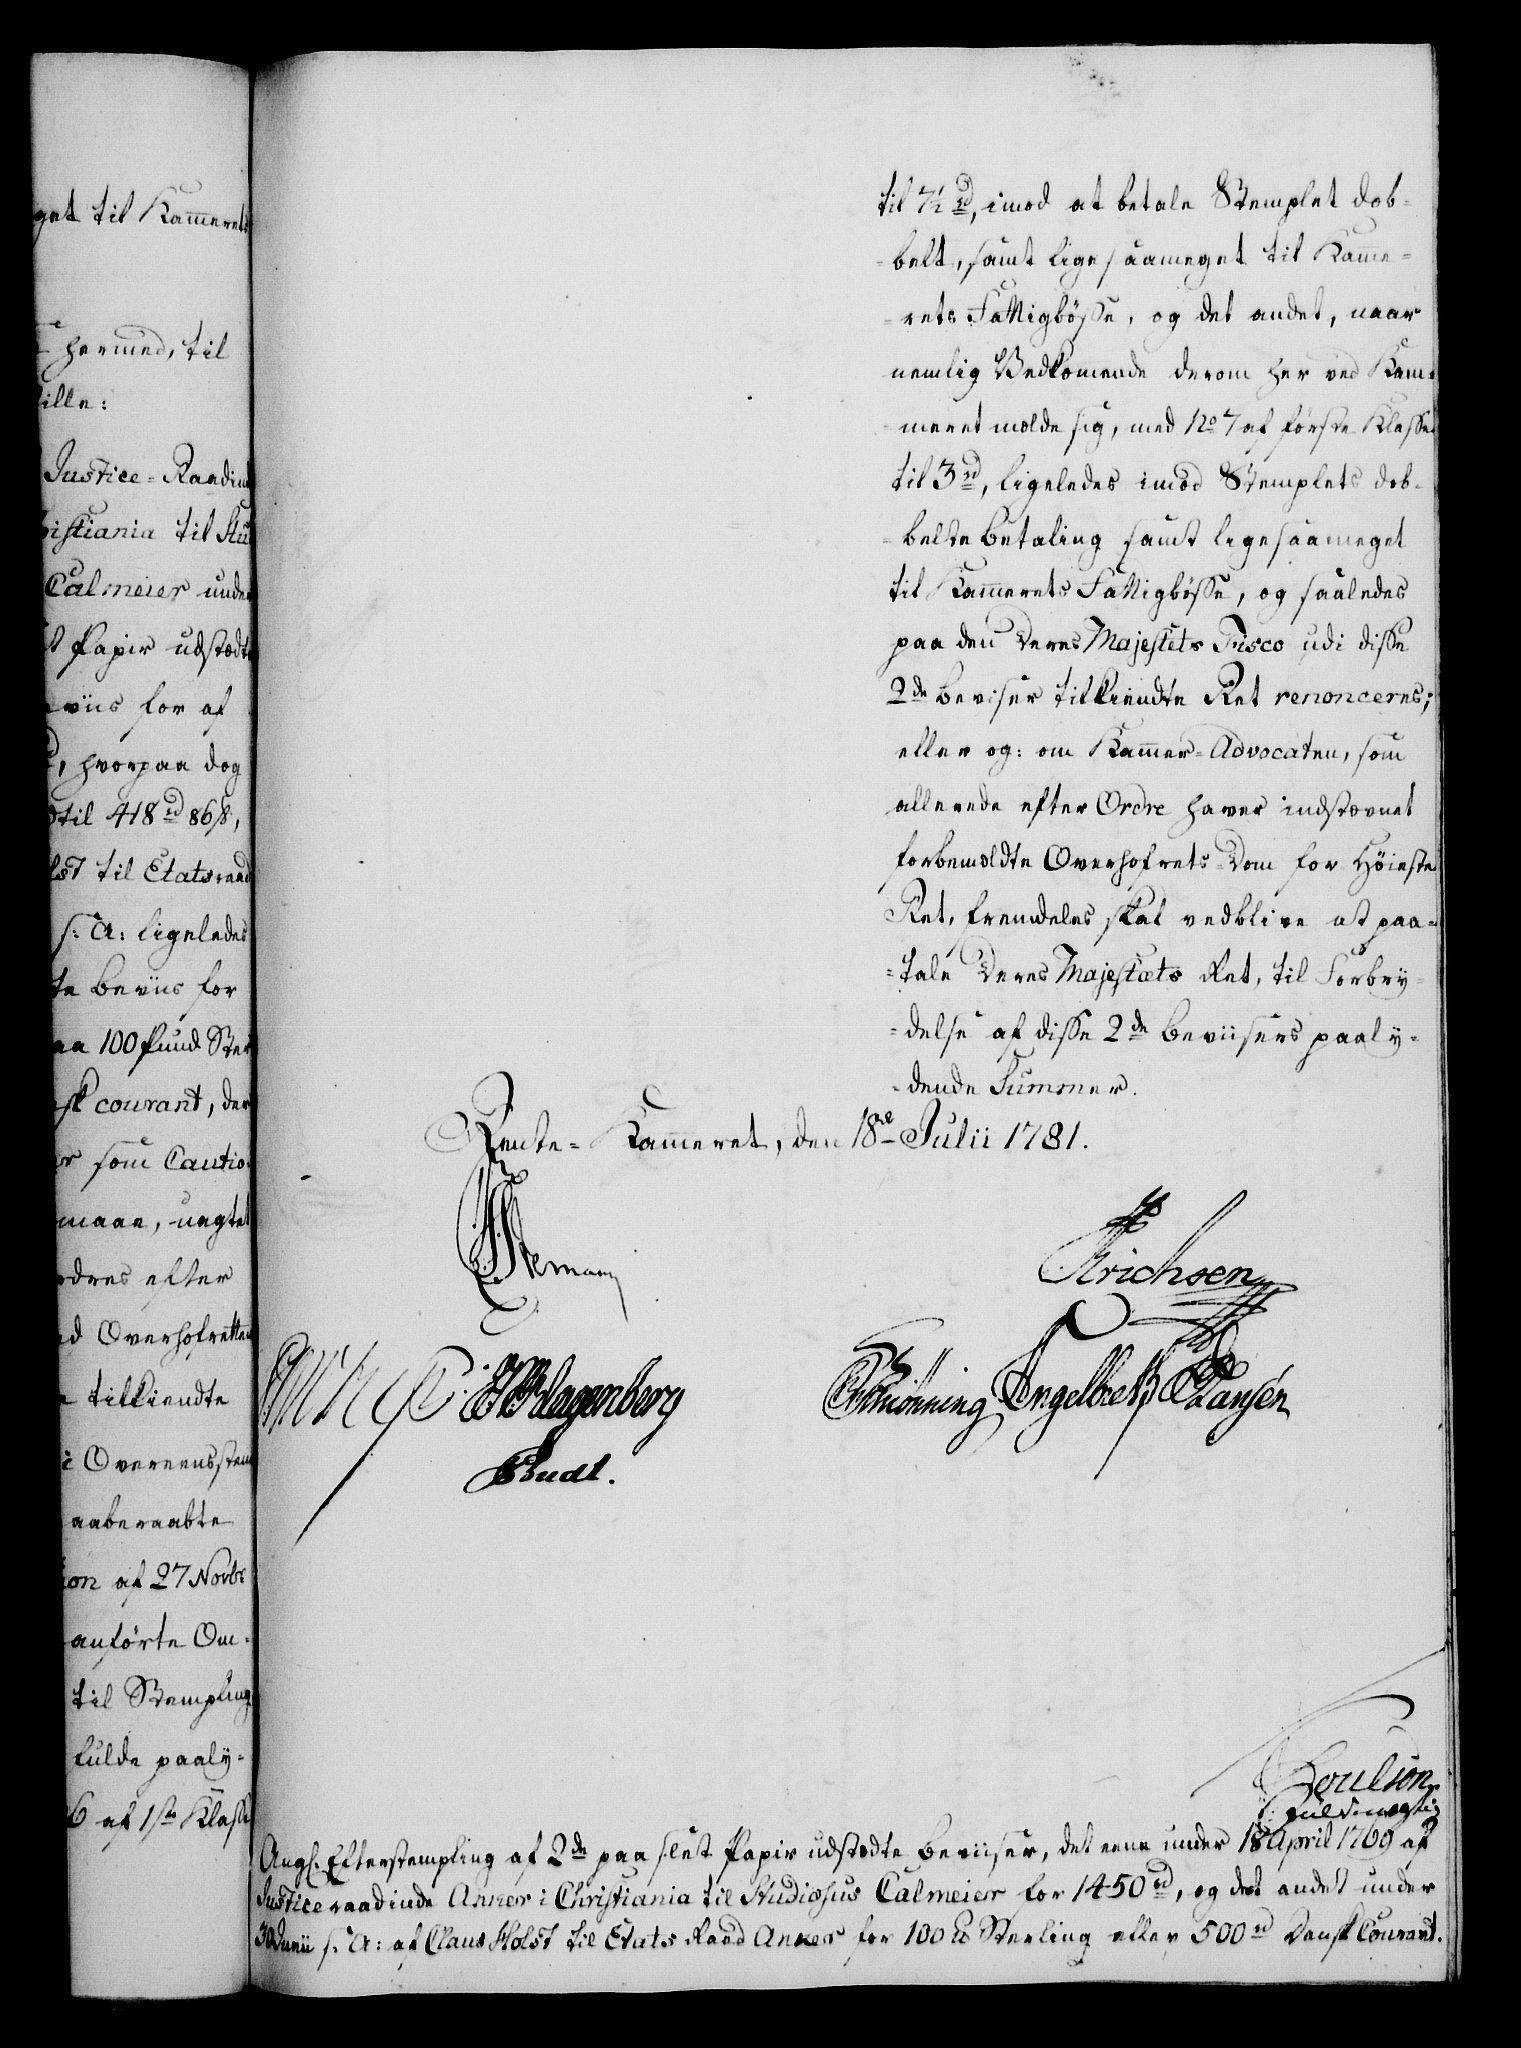 get til Kammerets
hermed, til
ille:
Justice-Raadin
istiania til Stu
Calmeier under
Papir udstædte
eviis for af
, hvorpaa dog
til 418 rd 86 s,
lst til Etatsraad
s: A: ligeledes
te Beviis for
aa 100 Pund Ster
sk courant, der
r som Cautio-
maae, uagtet
rdres efter
ed Overhofretten
tilkiendte
i Overeensstem
aaberaabte
ion af 27 Novbr
anførte Om-
til Stempling
fulde paaly-
6 af 1ste Klasse
til 7½ rd, imod at betale Stemplet dob-
-belt, samt ligesaameget til Kamme-
-rets Fattigbøsse, og det andet, naar
nemlig Vedkommende derom her ved Kam-
-meret melde sig, med No 7 af første Klasse
til 3 rd, ligeledes imod Stemplets dob-
-belte Betaling samt ligesaameget
til Kammerets Fattigbøsse, og saaledes
paa den Deres Majestets Fisco udi disse
2de Beviser tilkiendte Ret renonceres;
eller og: om Kammer-Advocaten, som
allerede efter Ordre haver indstævnet
forbemeldte Overhofrets-Dom for Høieste
Ret, fremdeles skal vedblive at paa-
-tale Deres Majestæts Ret, til Forbry-
-delse af disse 2de Beviisers paaly-
-dende Summer.
Rente-Kammeret, den 18de Julii 1781.
Stemann
Erichsen
Klagenberg
Schiønning Engelbreth Hansen
Budt.
Poulson
fuldmægtig
Angl. Efterstempling af 2de paa slet Papir udstædte Beviiser, det eene under 18 April 1769 af
Justiceraadinde Anker i Christiania til Studiosus Calmeier for 1450 rd, og det andet under
30 Junii s: A: af Claus Holst til Etats Raad Anker for 100 £ Sterling eller 500 rd Dansk Courant.